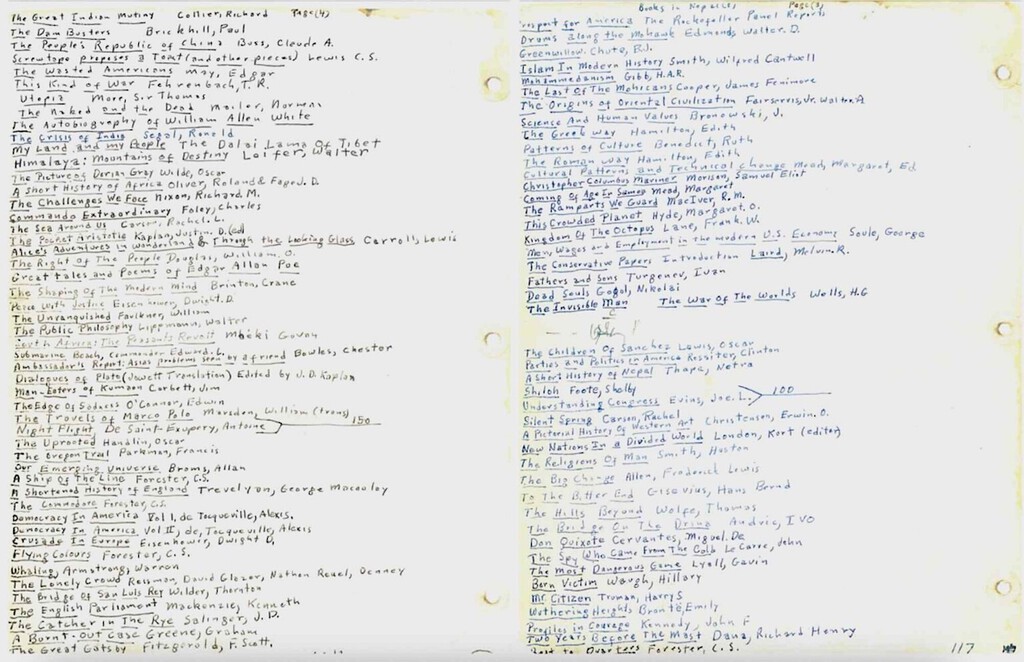 The Great Indian Mutiny Collier, Richard Page (4)
The Dam Busters Brickhill, Paul
The People's Republic of China Buss, Claude A.
Screwtape proposes a Toast (and other pieces) Lewis C.S.
The Wasted Americans May, Edgar
This Kind of War Fehrenbach, T.R.
Utopia More, Sir Thomas
The Naked and the Dead Mailer, Norman
The Autobiography of William Allen White
The Crisis of India Segal, Ronald
My Land and my People The Dalai Lama Of Tibet
Himalaya: Mountains of Destiny Loifer, Walter
The Picture of Dorian Gray Wilde, Oscar
A Short History of Africa Oliver, Roland & Fage J.D.
The Challenges We Face Nixon, Richard M.
Commando Extraordinary Foley, Charles
The Sea Around Us Carson, Rachel. L.
The Pocket Aristotle Kaplan, Justin. D. (ed)
Alice's Adventures in Wonderland & Through the Looking Glass Carroll, Lewis
The Right of The People Douglas, William. O.
Great tales and Poems of Edgar Allan Poe
The Shaping Of The modern Mind Brinton, Crane
Peace With Justice Eisenhower, Dwight. D.
The Unvanquished Faulkner, William
The Public Philosophy Lippmann, Walter
South Africa: The Peasants Revolt Mbeki Govan
Submarine Beach, Commander Edward. L.
Ambassador's Report: Asias problems seen by a friend Bowles, Chester
Dialogues of Plato (Jowett Translation) Edited by J.D. Kaplan
Man-Eaters of Kumaon Corbett, Jim
The Edge Of Sadness O'Connor, Edwin
The Travels of Marco Polo Marsden, William (trans)
Night Flight, De Saint-Exupery, Antoine 150
The Uprooted Handlin, Oscar
The Oregon Trail Parkman, Francis
Our Emerging Universe Broms, Allan
A Ship Of The Line Forester, C.S.
A Shortened History of England Trevelyan, George Macaulay
The Commodore Forester, C.S.
Democracy In America Vol I, de Tocqueville, Alexis.
Democracy In America Vol II, de, Tocqueville, Alexis
Crusade In Europe Eisenhower, Dwight D.
Flying Colours Forester, C. S.
Whaling, Armstrong, Warren
The Lonely Crowd Ressman, David Glazer, Nathan Reuel, Denney
The Bridge Of San Luis Rey Wilder, Thornton
The English Parliament Mackenzie, Kenneth
The Catcher In The Rye Salinger, J.D.
A Burnt-Out Case Greene, Graham
The Great Gatsby Fitzgerald, F. Scott.
Books in Nepal Page (3)
rospect for America The Rockefeller Panel Reports
Drums along the Mohawk Edmonds, Walter. D.
Greenwillow. Chute, B.J.
Islam In Modern History Smith, Wilfred Cantwell
Mohammedanism Gibb, H.A.R.
The Last Of The Mohicans Cooper, James Fenimore
The Origins of Oriental Civilization Fairservis, Jr. Walter. A
Science And Human Values Bronowski, J.
The Greek Way Hamilton, Edith
Patterns of Culture Benedict, Ruth
The Roman Way Hamilton, Edith
Cultural Patterns and Technical change Mead, Margaret, Ed
Christopher Columbus Mariner Morison, Samuel Eliot
Coming Of Age In Samoa Mead, Margaret
The Ramparts We Guard MacIver, R.M.
This Crowded Planet Hyde, Margaret. O.
Kingdom Of The Octopus Lane, Frank. W.
Men, Wages and Employment in the modern U.S. Economy Soule, George
The Conservative Papers Introduction Laird, Melvin. R.
Fathers and Sons Turgenev, Ivan
Dead Souls Gogol, Nikolai
The Invisible Man The War Of The Worlds Wells, H.G
The Children Of Sanchez Lewis, Oscar
Parties and Politics in America Rossiter, Clinton
A Short History of Nepal Thapa, Netra
Shiloh Foote, Shelby
Understanding Congress Evins, Joe. L. 100
Silent Spring Carson, Rachel
A Pictorial History Of Western Art Christensen, Erwin. O.
New Nations In a Divided World London, Kurt (editor)
The Religions Of Man Smith, Huston
The Big Change Allen, Frederick Lewis
To The Bitter End Gisevius, Hans Bernd
The Hills Beyond Wolfe, Thomas
The Bridge On The Drina Andric, IVO
Don Quixote Cervantes, Miguel. De
The Spy Who Came From The Cold Le Carre, John
The Most Dangerous Game Lyall, Gavin
Born Victim Waugh, Hillary
Mr Citizen Truman, Harry S
Wuthering Heights Brontë, Emily
Profiles in Courage Kennedy, John F
Two Years Before The Mast Dana, Richard Henry
to Quarters Forester, C.S. 117